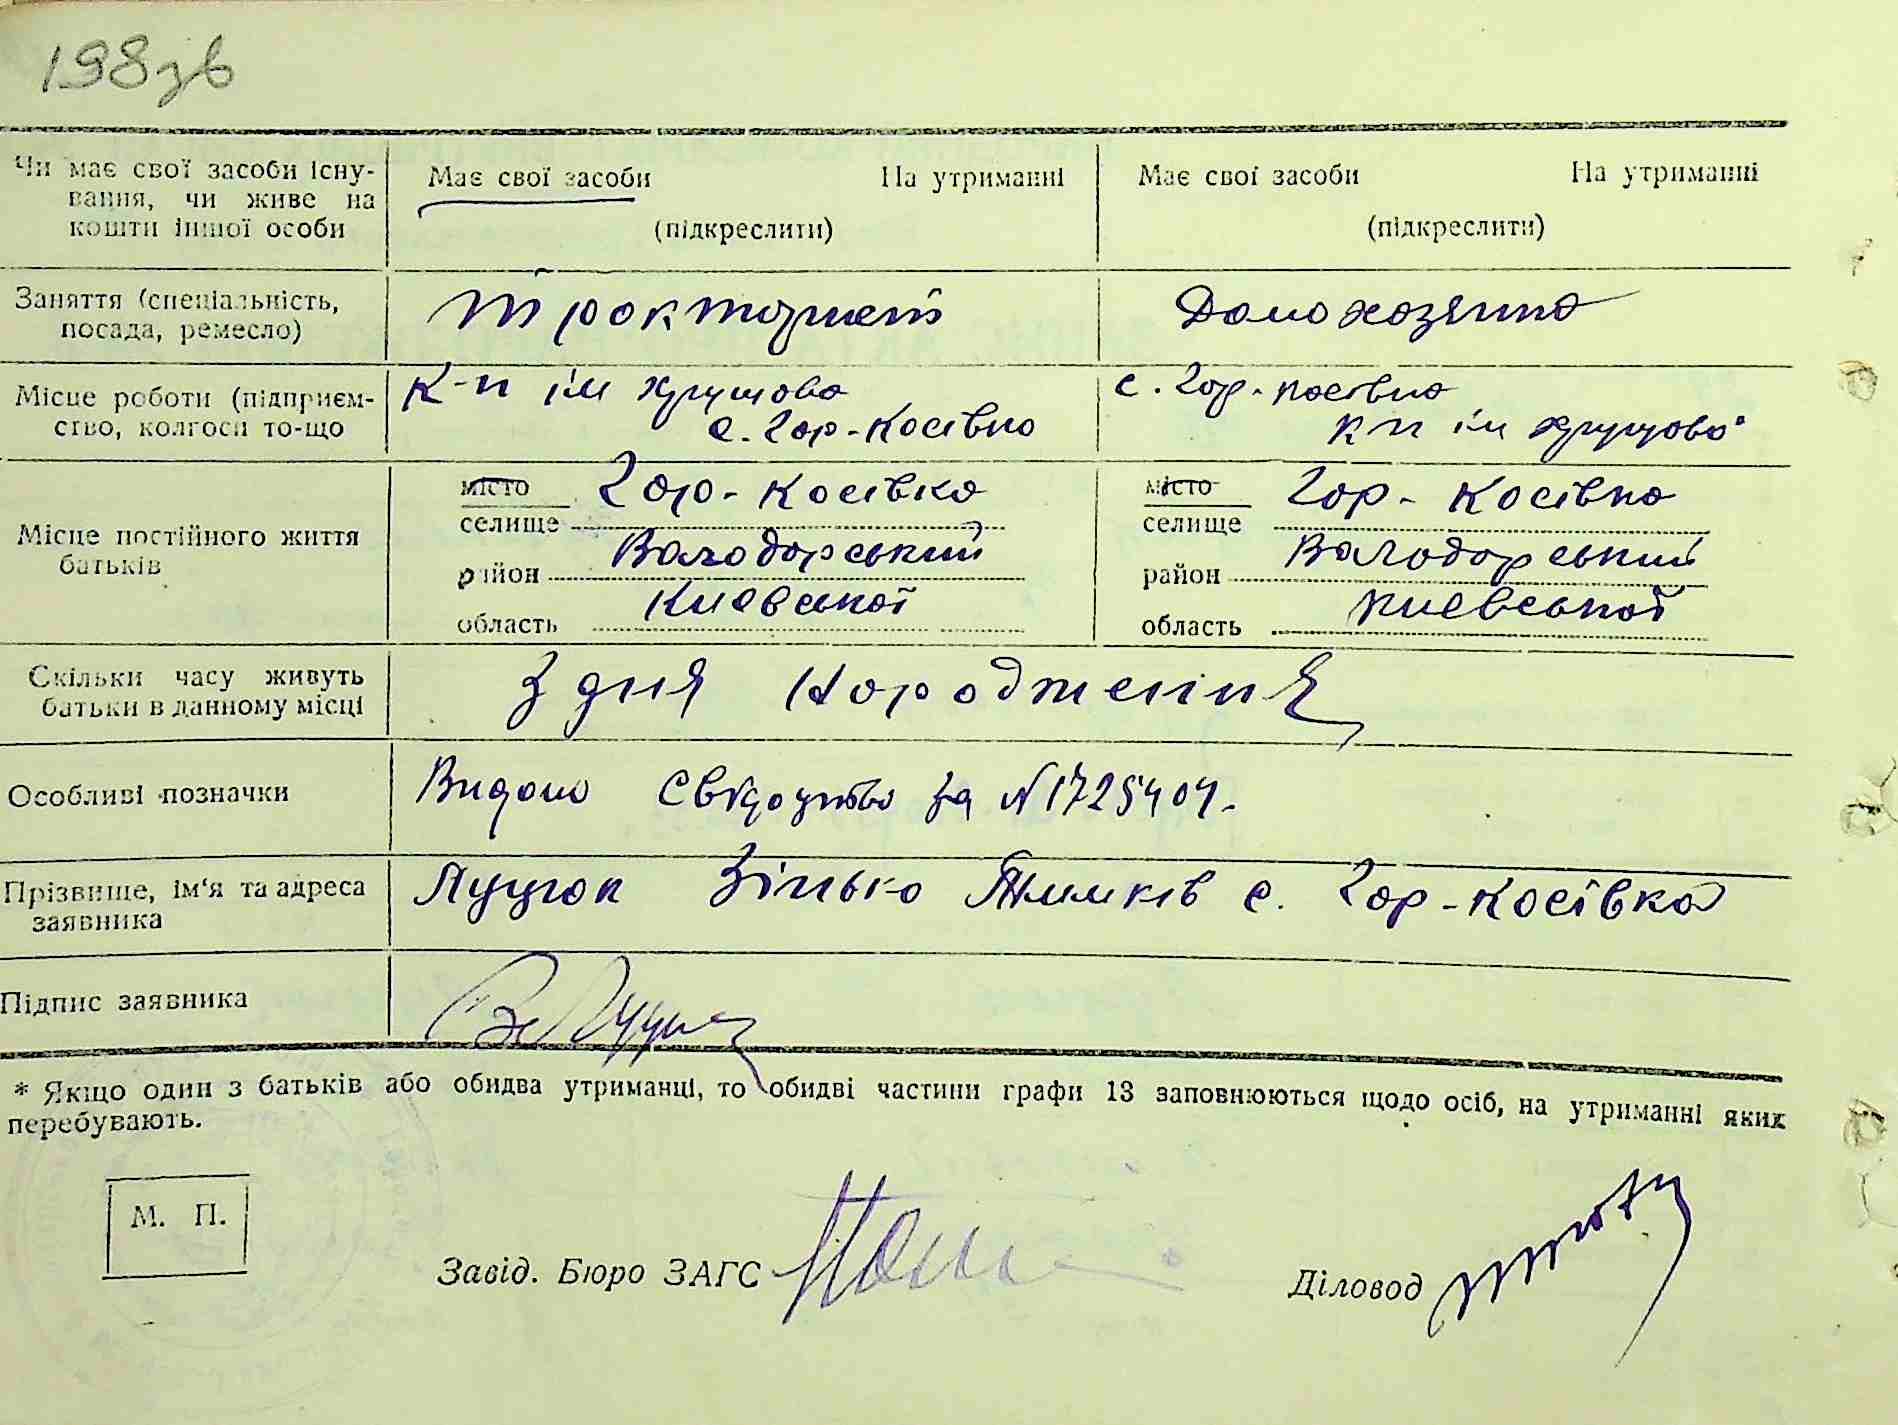 198зв
Чи має свої засоби існу-
вання, чи живе на
кошти іншої особи
Має свої засоби На утриманні
(підкреслити)
Має свої засоби На утриманні
(підкреслити)
Заняття (спеціальність,
посада, ремесло)
тракторист
Домохазяйка
Місце роботи (підприєм-
ство, колгосп то-що
К-п ім Хрущова
с. Гор-Косівка
с. Гор-Косівка
кп ім Хрущова
Місце постійного життя
батьків
місто
селище Гор-Косівка
район Володарський
область Києвської
місто
селище Гор-Косівка
район Володарський
область Києвської
Скільки часу живуть
батьки в данному місці
З дня народження
Особливі позначки
Видано Свідоцтво за №1725404.
Прізвище, ім'я та адреса
заявника
Луцюк Зінько с. Гор-Косівка
Підпис заявника
* Якщо один з батьків або обидва утриманці, то обидві частини графи 13 заповнюються щодо осіб, на утриманні яких
перебувають.
М. П.
Завід. Бюро ЗАГС
Діловод